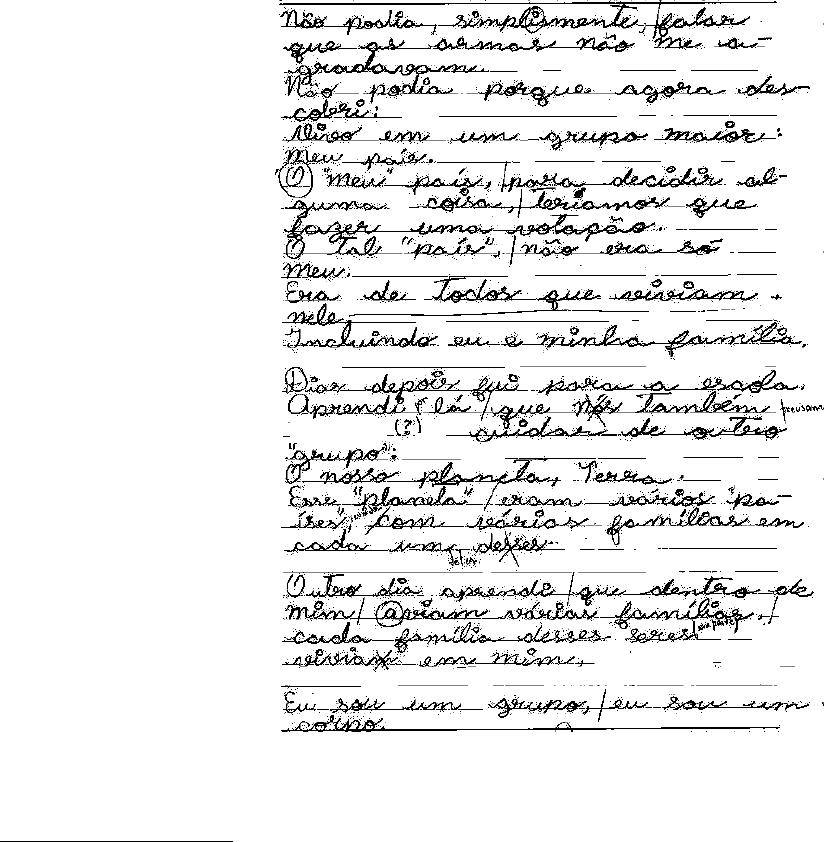 Não podia, simplismente, falar
que as armas não me a-
gradavam.
Não podia porque agora des-
cobri:
Vivo em um grupo maior:
Meu país.
O "meu" país, para decidir al-
guma coisa, teriamos que
fazer uma votação.
O tal "país", não era só
meu.
Era de todos que viviam
nele,
Incluindo eu e minha família.
Dias depois fui para a escola.
Aprendi lá que nós também precisamos
(?) cuidar de outro
"grupo":
O nosso planeta, Terra.
Esse "planeta" eram vários "pa-
íses", com várias famílias em
cada um desses
deles
Outro dia aprendi que dentro de
mim aviam várias famílias,
cada família desses seres
viviam em mim.
Eu sou um grupo, eu sou um
corpo.